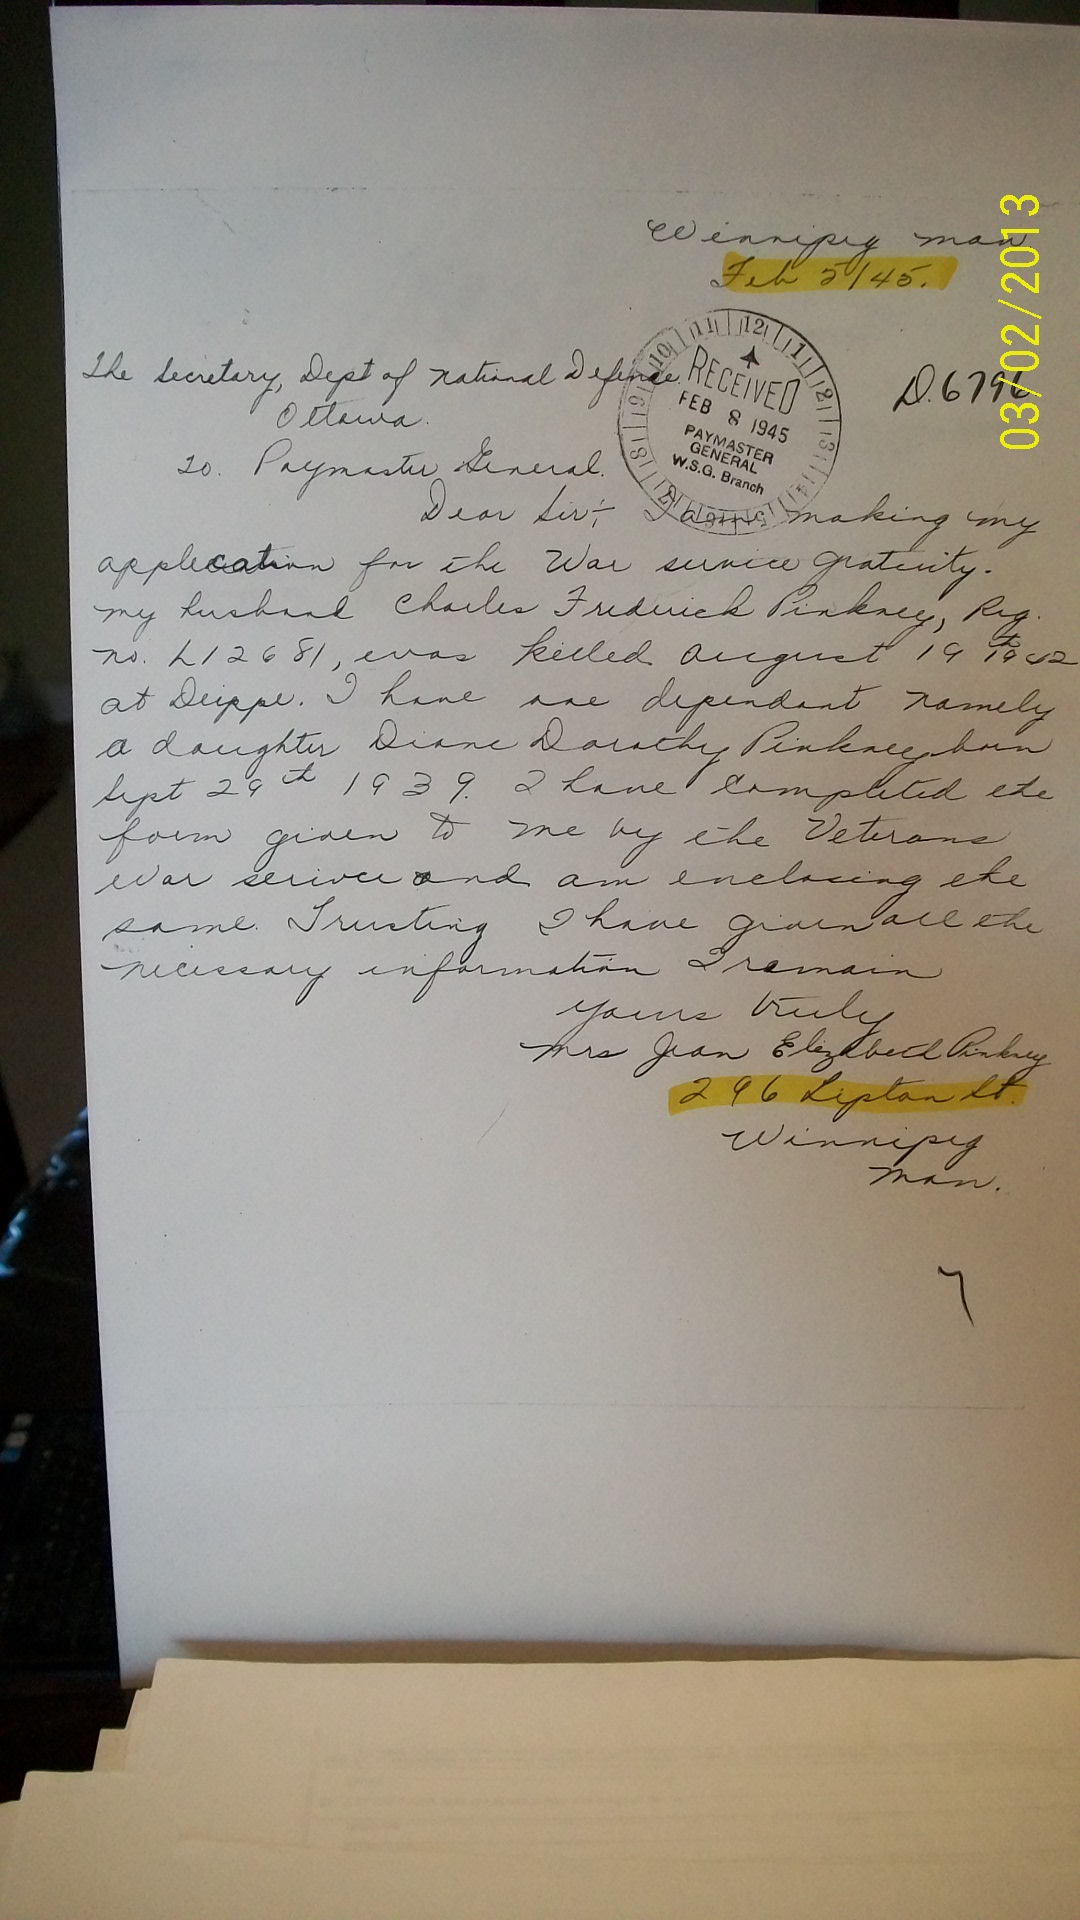 Winnipeg Man
Feb 5/45.
03/02/2013
The Secretary, Dept of National Defense.
Ottawa.
D.6796
RECEIVED
FEB 8 1945
PAYMASTER
GENERAL
W.S.G. Branch
To. Paymaster General.
Dear Sir:- I am making my
application for the War service Gratuity.
My husband Charles Frederick Pinkney, Reg.
no. L12681, was killed August 19th 42
at Deippe. I have one dependant namely
a daughter Diane Dorothy Pinkney born
Sept 29th 1939. I have completed the
form given to me by the Veterans
War serivce and am enclosing the
same. Trusting I have given all the
necessary information I remain
Yours truly
Mrs Jean Elizabeth Pinkney
296 Lipton St.
Winnipeg
Man.
7